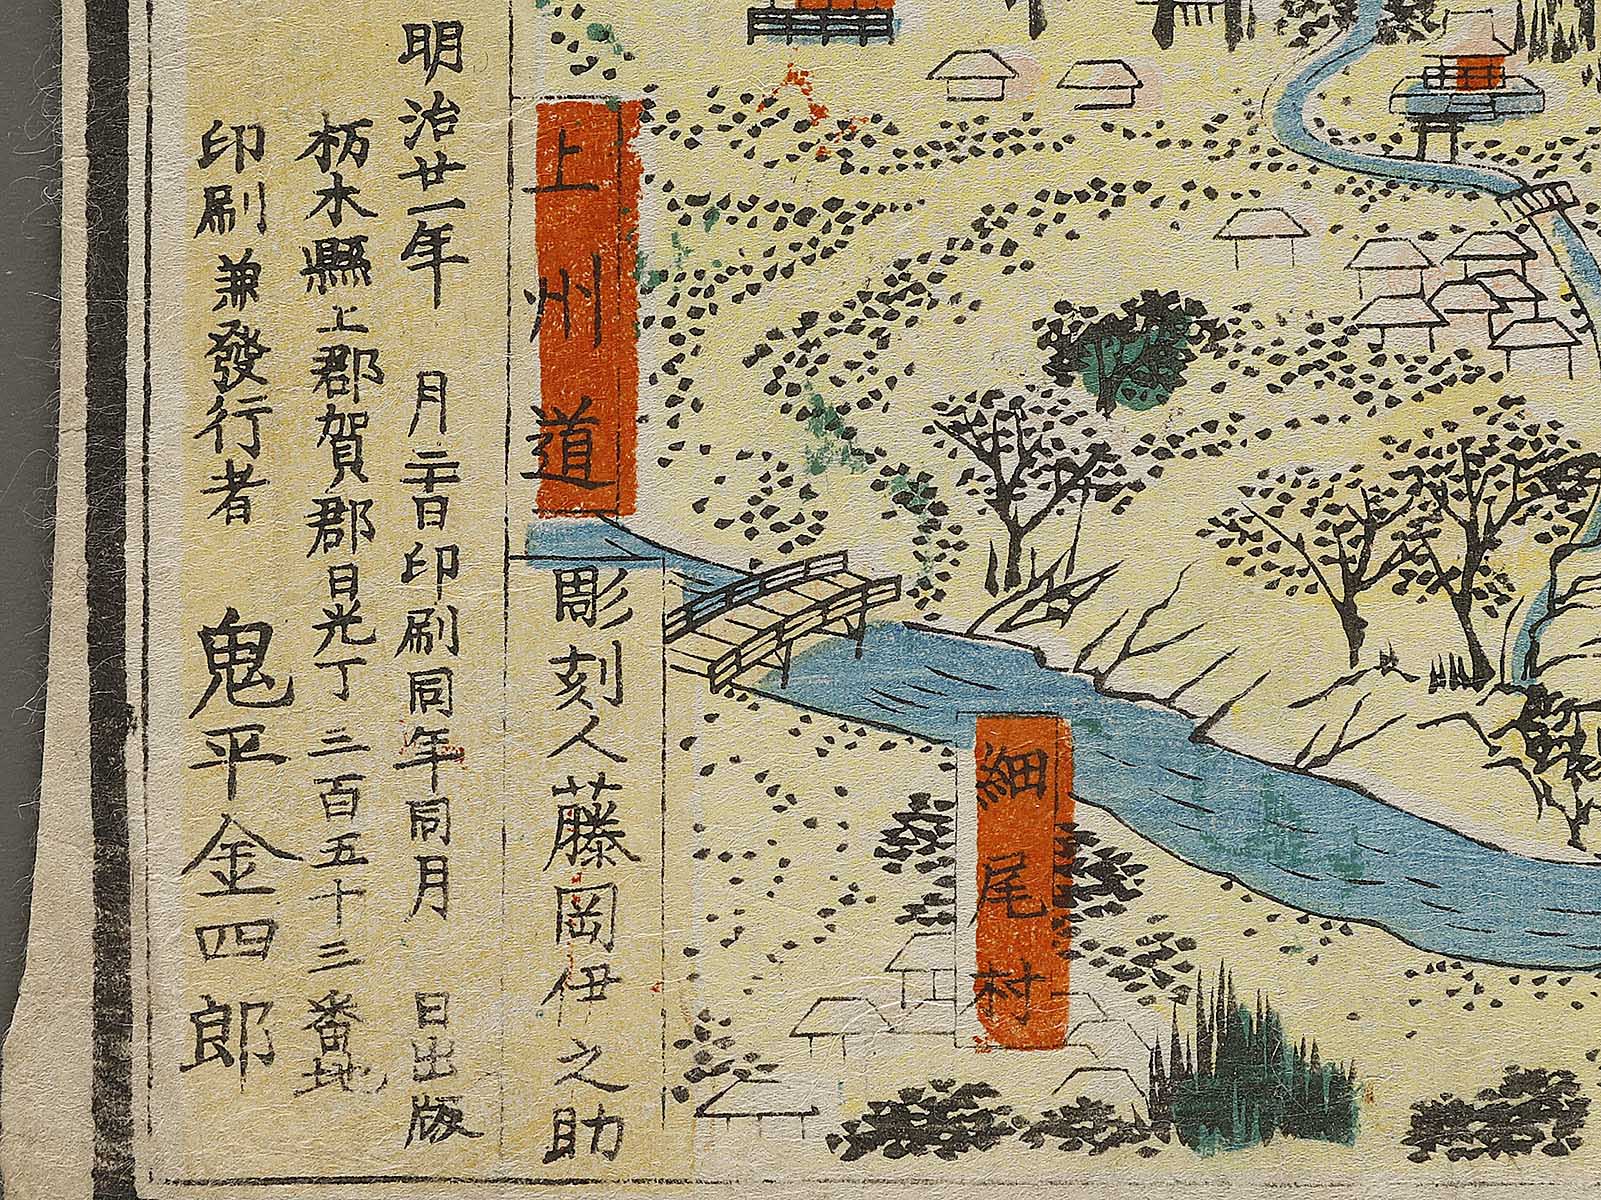 上州道
細尾村
彫刻人藤岡伊之助
明治廿一年 月二日印刷同年同月 日出版
栃木縣上都賀郡日光丁二百五十三番地
印刷兼發行者 鬼平金四郎